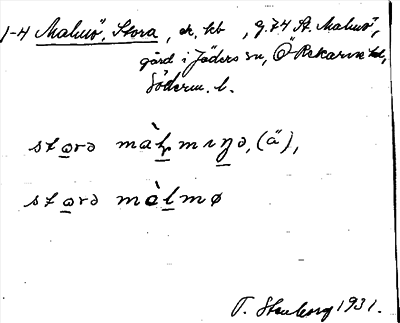 1-4 Malmö, Stora, ek. kb, g. 74 St. Malmö,
gård i Jäders sn, Ö Rekarne hd,
Söderm. l.
storə màlmıŋə, (ä),
storə màlmø
T. Stenborg 1931.